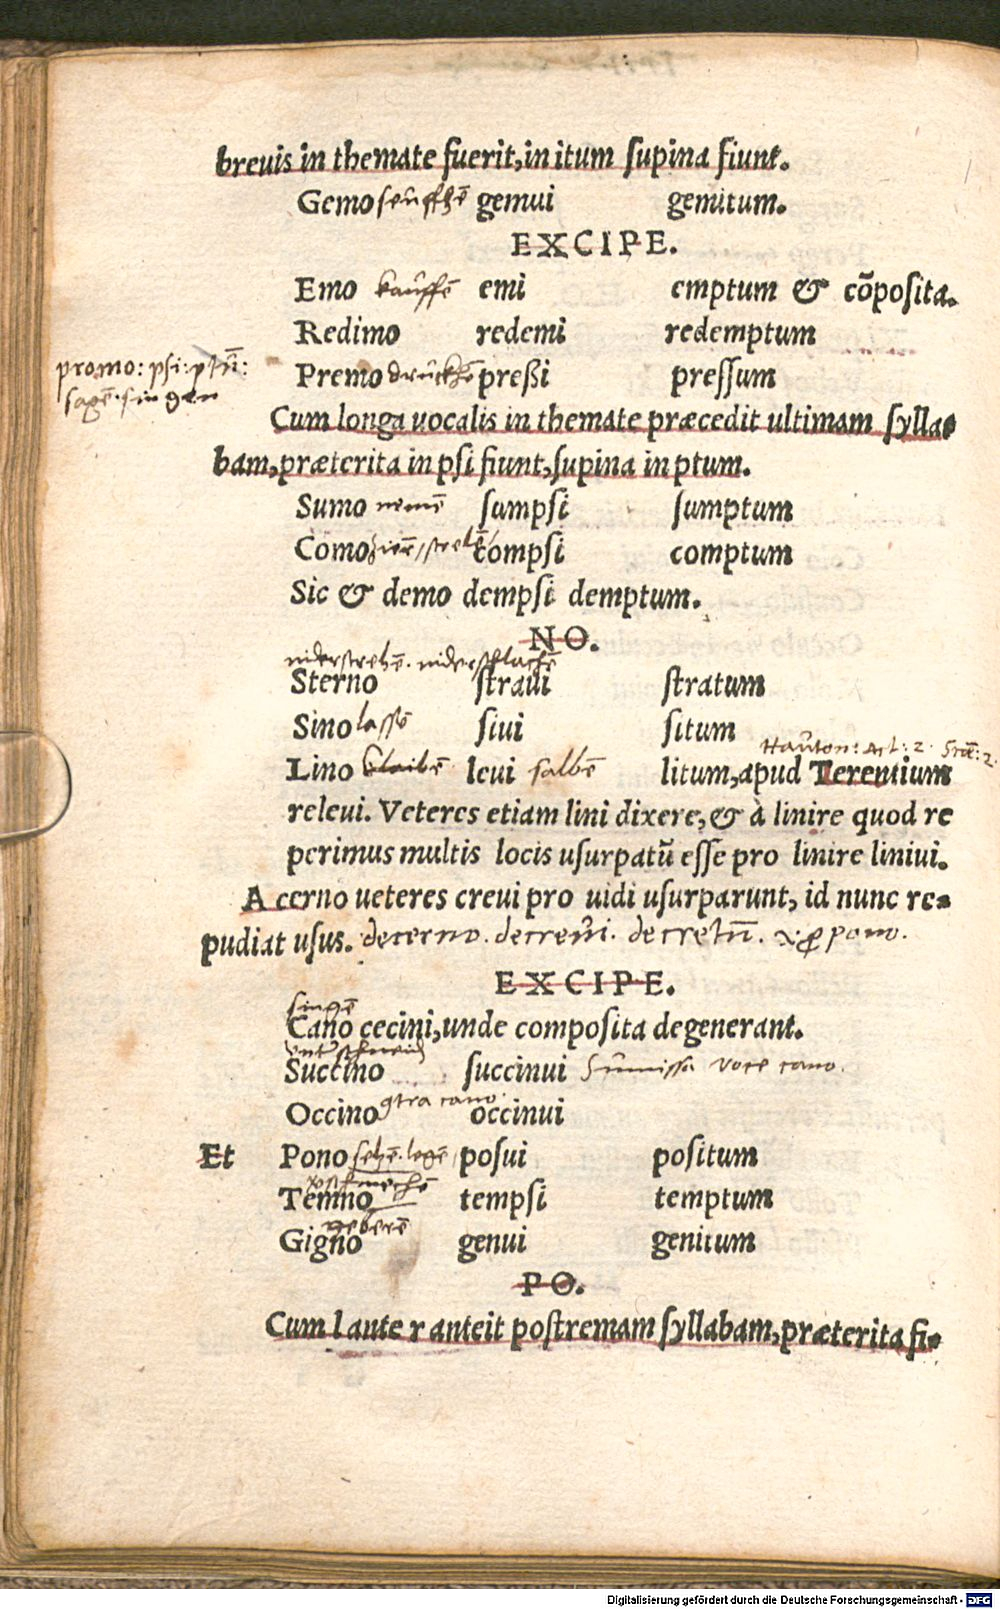 brevis in themate fuerit, in itum supina fiunt.
Gemo seûfftzē gemui gemitum.
EXCIPE.
Emo kauffē emi emptum & cōposita.
Redimo redemi redemptum
Premo drückē preßi pressum
promo: psi: ptū:
sagē. singen
Cum longa vocalis in themate præcedit ultimam sylla-
bam, præterita in psi fiunt, supina in ptum.
Sumo nemē sumpsi sumptum
Como compsi comptum
Sic & demo dempsi demptum.
NO.
niderstrehē. niderschlachē
Sterno stravi stratum
Sino lassē sivi situm
Hauton: Act: 2. Scē: 2.
Lino levi salbē litum, apud Terentium
relevi. Veteres etiam lini dixere, & à linire quod re
perimus multis locis usurpatū esse pro linire linivi.
A cerno veteres crevi pro vidi usurparunt, id nunc re-
pudiat usus. decerno. decrevi. decretū.
EXCIPE.
singē
Cano cecini, unde composita degenerant.
Succino succinui Sūmissa voce cano.
Occino ꝯtra cano occinui
Et Pono setzē. legē posui positum
Temno tempsi temptum
geberē
Gigno genui genitum
PO.
Cum l aut r anteit postremam syllabam, præterita fi-
Digitalisierung gefördert durch die Deutsche Forschungsgemeinschaft - DFG